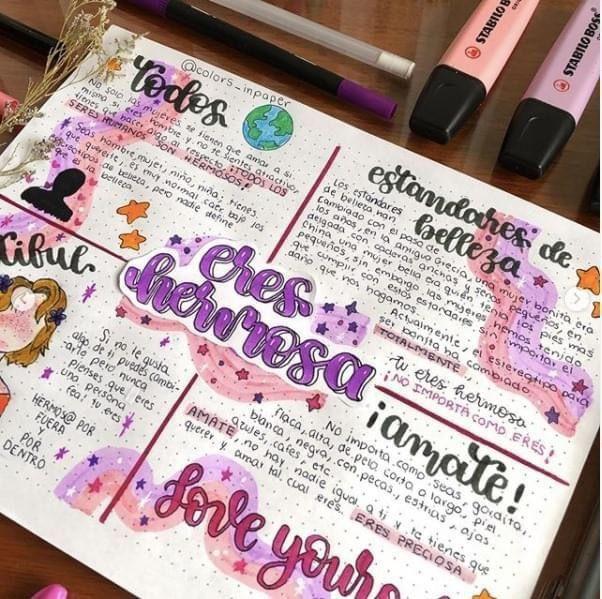 @colors_inpaper
Todos
No solo las mujeres
tienes que amar a si
misma si eres hombre y no te sientes atractivo,
tienes que hacer algo al respecto ¡TODOS LOS
SERES HUMANOS SON HERMOSOS!
Seas hombre, mujer, niño, niña, tienes
que quererte, es muy normal caer bajo los
de belleza, pero nadie define
es la
belleza.
estandares de
belleza
Los estandares
de belleza han
cambiado con el paso de
los años, en la antigua Grecia una mujer bonita era
delgada con caderas anchas y senos pequeños, en
china una mujer bella era quien tenía los pies mas
pequeños, sin embargo, las mujeres hemos tenido
que cumplir con esos estandares sin importa el
daño que nos hagamos.
Actualmente el estereotipo para
ser bonita ha cambiado
TOTALMENTE
tu eres hermosa
¡NO IMPORTA COMO ERES!
eres
hermosa
tiful
Si no te gusta
algo de ti puedes cambi-
arlo pero nunca
pienses que eres
una persona
fea! tu eres
HERMOS@ POR
FUERA
Y POR
DENTRO
¡amate!
No importa como seas, gordita,
flaca, alta, de pelo corto o largo, piel
blanca, negra, con pecas, estrias, ojos
azules, cafes, etc.
AMATE, no hay nadie igual a ti y te tienes que
querer y amar tal cual eres. ERES PRECIOSA
Love your
STABILO BOSS
STABILO BOSS